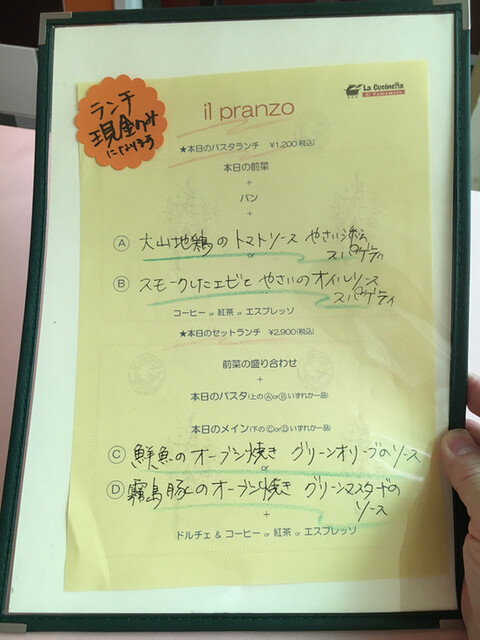 ランチ
現金のみ
になります
La Cucinetta
di Yamamoto
il pranzo
★本日のパスタランチ　¥1,200(税込)
本日の前菜
+
パン
+
Ⓐ 大山地鶏のトマトソース やさい添え
スパゲティ
or
Ⓑ スモークしたエビと やさいのオイルソース
スパゲティ
コーヒー or 紅茶 or エスプレッソ
★本日のセットランチ　¥2,900(税込)
前菜の盛り合わせ
+
本日のパスタ(上のⒶorⒷいずれか一品)
本日のメイン(下のⒸorⒹいずれか一品)
Ⓒ 鮮魚のオーブン焼き グリーンオリーブのソース
or
Ⓓ 霧島豚のオーブン焼き グリーンマスタードの
ソース
+
ドルチェ & コーヒー or 紅茶 or エスプレッソ